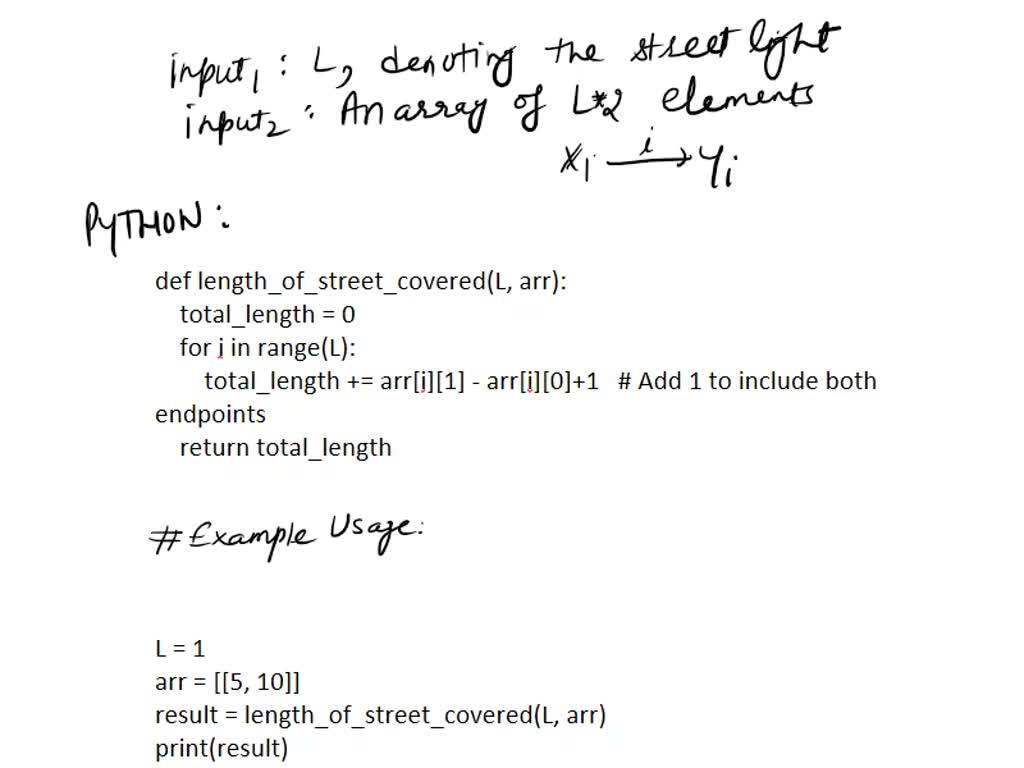 input1 : L, denoting the street light
input2 : An array of L*2 elements
Xi i → Yi
PYTHON :
def length_of_street_covered(L, arr):
total_length = 0
for i in range(L):
total_length += arr[i][1] - arr[i][0]+1 # Add 1 to include both
endpoints
return total_length
# Example Usage:
L = 1
arr = [[5, 10]]
result = length_of_street_covered(L, arr)
print(result)